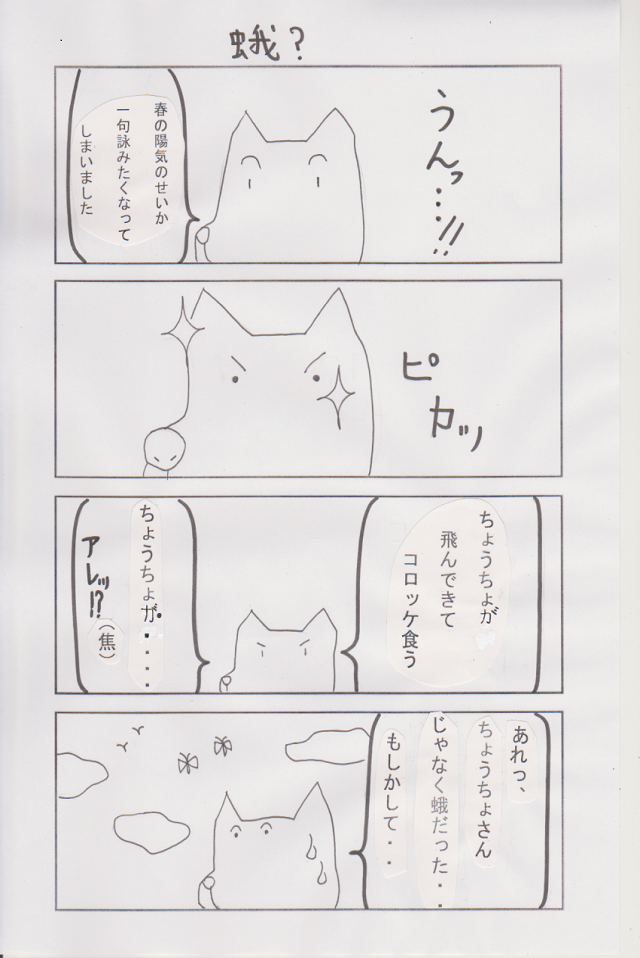 蛾?
うんっ・・・!!
春の陽気のせいか
一句詠みたくなって
しまいました
ピカッ
ちょうちょが
飛んできて
コロッケ食う
ちょうちょが・・・・・
アレッ!?
(焦)
あれっ、
ちょうちょさん
じゃなく蛾だった・・
もしかして・・